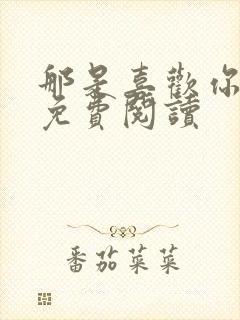 那是喜歡你
免費閱讀
番茄菜菜